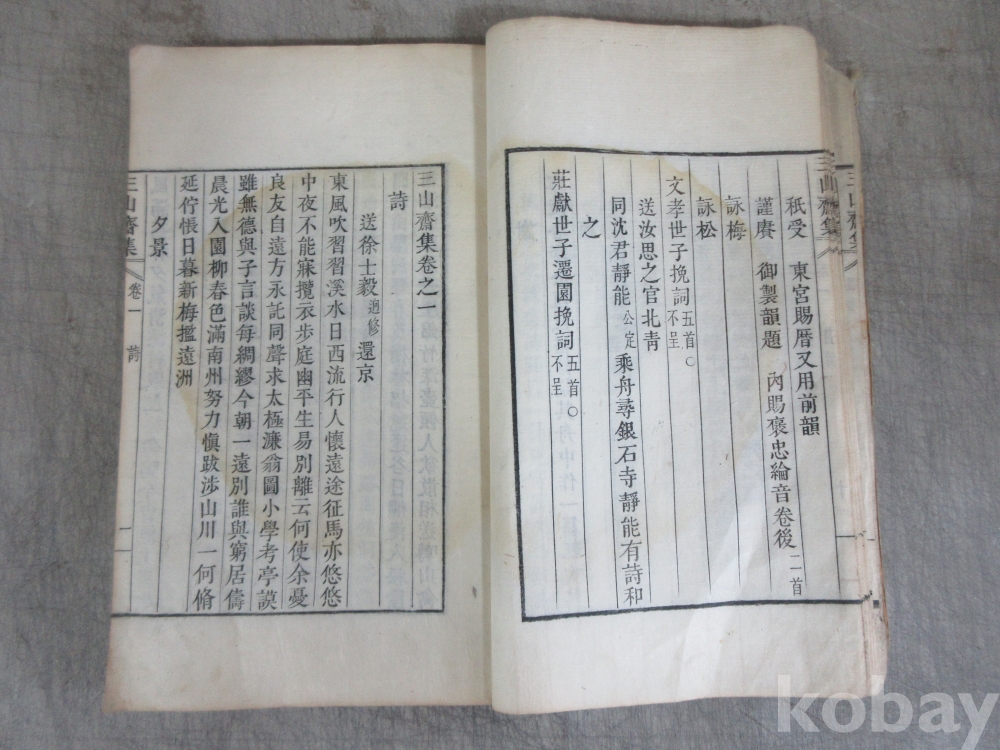 三山齋集
祇受　東宮賜曆又用前韻
謹賡　御製韻題　內賜褒忠綸音卷後二首
詠梅
詠松
文孝世子挽詞五首○不呈
送汝思之官北青
同沈君靜能公定乘舟尋銀石寺靜能有詩和
之
莊獻世子遷園挽詞五首○不呈
三山齋集卷之一
詩
送徐士毅逈修還京
東風吹習習溪水日西流行人懷遠途征馬亦悠悠
中夜不能寐攬衣步庭幽平生易別離云何使余憂
良友自遠方永託同聲求太極濂翁圖小學考亭謨
雖無德與子言談每綢繆今朝一遠別誰與窮居儔
晨光入園柳春色滿南州努力愼跋涉山川一何脩
延佇悵日暮新梅搵遠洲
夕景
三山齋集
卷一
詩
一
kobay